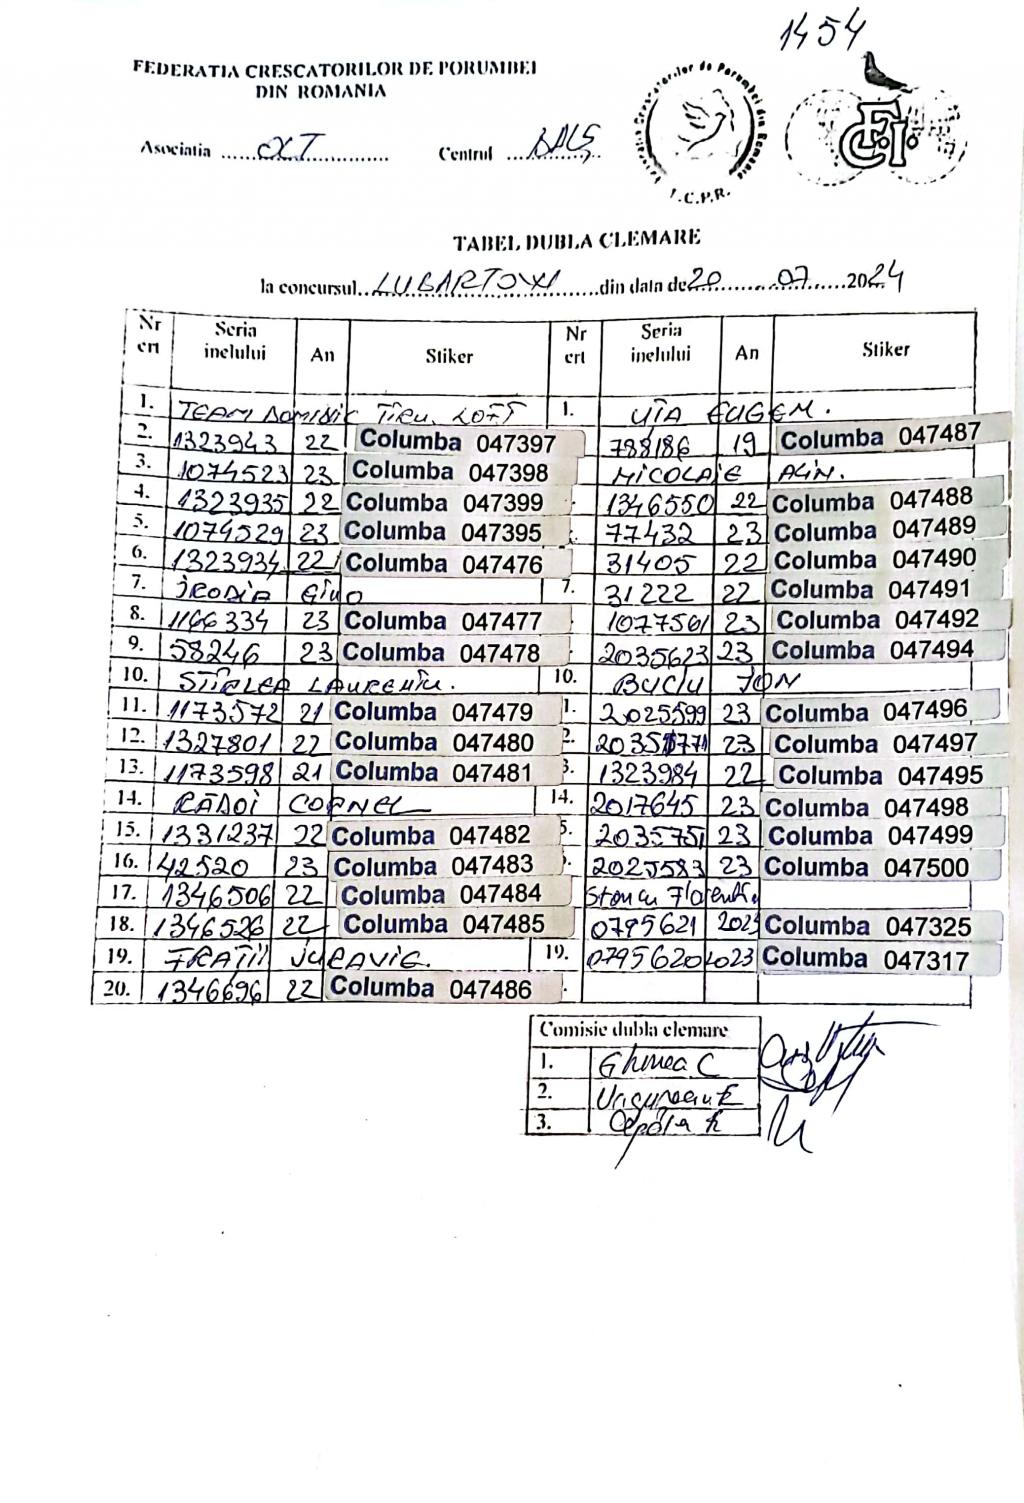 1454
FEDERATIA CRESCATORILOR DE PORUMBEI
DIN ROMANIA
Asociatia ......OLT............... Centrul ....BALȘ....
F.C.P.R.
FCI
TABEL DUBLA CLEMARE
la concursul...LUBARTOW......din data de 20.......07......2024
Nr crt Seria inelului An Stiker Nr crt Seria inelului An Stiker
1. TEAM DOMINIC TIRU LOFT 1. UȚA EUGEN.
2. 1323943 22 Columba 047397 788186 19 Columba 047487
3. 1074523 23 Columba 047398 NICOLAIE ALIN.
4. 1323935 22 Columba 047399 1346550 22 Columba 047488
5. 1074529 23 Columba 047395 77432 23 Columba 047489
6. 1323934 22 Columba 047476 31405 22 Columba 047490
7. IRODIA GINO 7. 31222 22 Columba 047491
8. 1166334 23 Columba 047477 1077561 23 Columba 047492
9. 58246 23 Columba 047478 2035623 23 Columba 047494
10. STÎRLEA LAURENȚIU. 10. BUCIU ION
11. 1173572 21 Columba 047479 1. 2025599 23 Columba 047496
12. 1327801 22 Columba 047480 2. 23 Columba 047497
13. 1173598 21 Columba 047481 3. 1323984 22 Columba 047495
14. RĂDOI CORNEL 14. 2017645 23 Columba 047498
15. 1331237 22 Columba 047482 5. 2035751 23 Columba 047499
16. 42520 23 Columba 047483 2025583 23 Columba 047500
17. 1346506 22 Columba 047484 Stancu Florentin
18. 1346526 22 Columba 047485 0795621 2023 Columba 047325
19. FRAȚII JURAVIC. 19. 0795620 2023 Columba 047317
20. 1346696 22 Columba 047486
Comisie dubla clemare
1. Ghinea C
2. Ungureanu E
3.